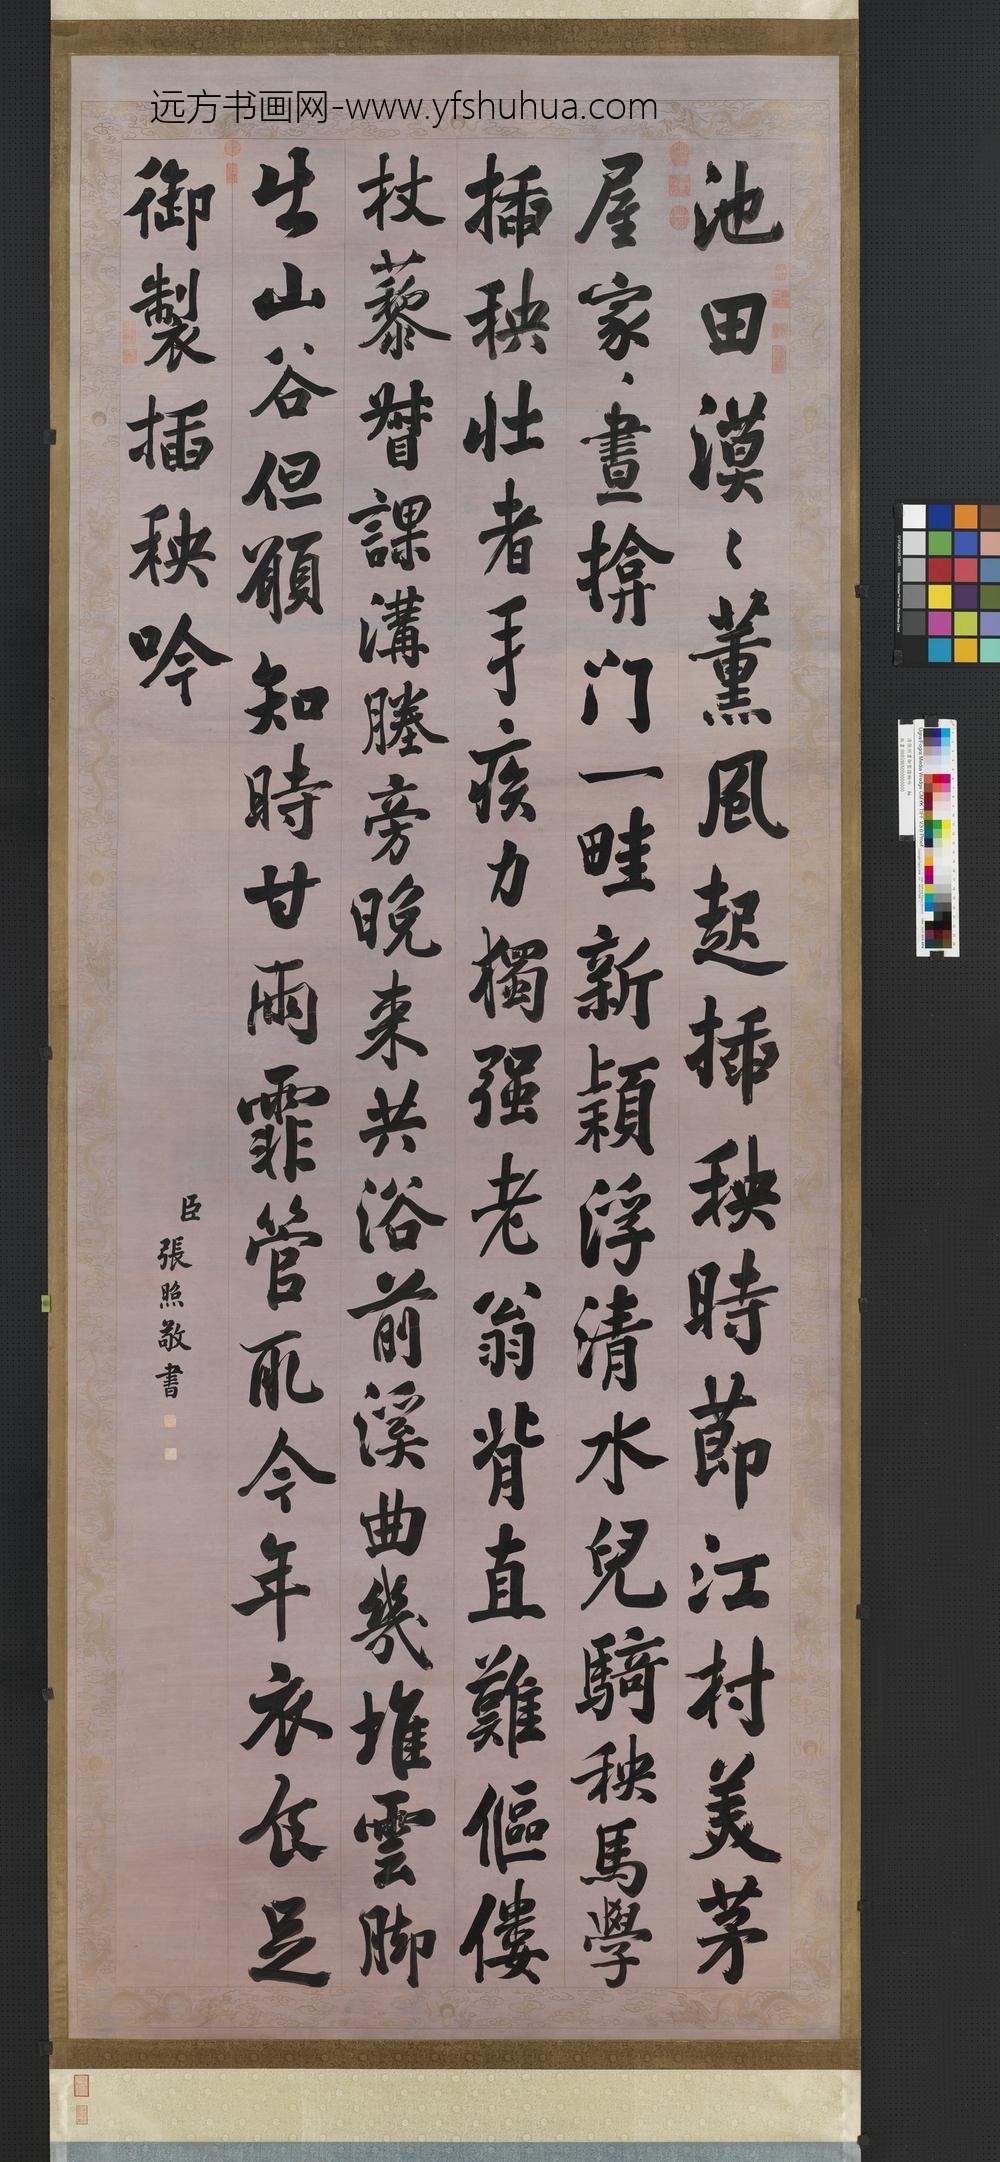 远方书画网-www.yfshuhua.com
池田漠〻薰風起插秧時節江村美茅
屋家〻晝揜门一畦新穎浮清水兒騎秧馬學
插秧壮者手疾力獨强老翁背直難傴僂
杖藜督課溝塍旁晚来共浴前溪曲幾堆雲脚
出山谷但願知時甘雨霏管取今年衣食足
御製插秧吟
臣張照敬書